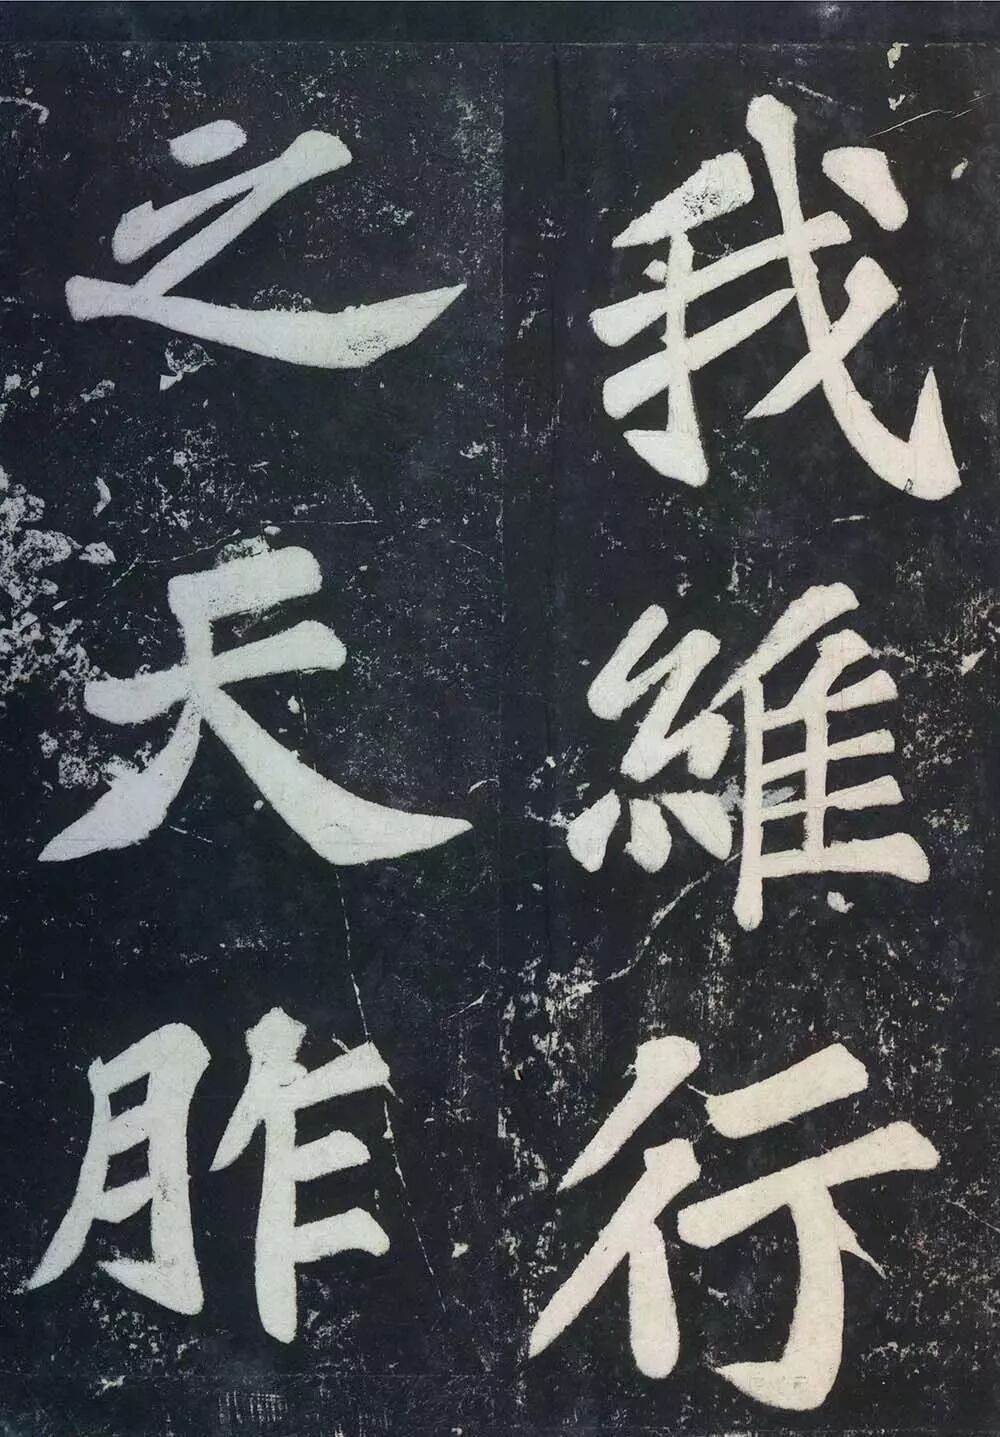 我維行
之天胙